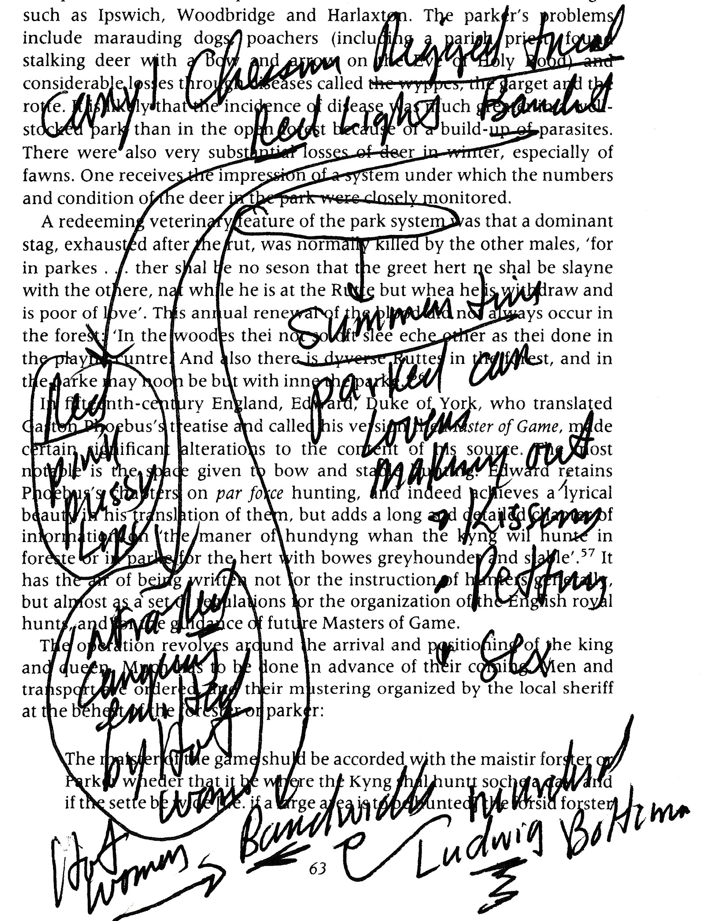 such as Ipswich, Woodbridge and Harlaxton. The parker's problems
include marauding dogs, poachers (including a parish priest found
stalking deer with a bow and arrow on the Eve of Holy Rood) and
considerable losses through diseases called the wyppes, the garget and the
rotte. It is likely that the incidence of disease was much greater in a well-
stocked park than in the open forest because of a build-up of parasites.
There were also very substantial losses of deer in winter, especially of
fawns. One receives the impression of a system under which the numbers
and condition of the deer in the park were closely monitored.
Red Light
A redeeming veterinary feature of the park system was that a dominant
stag, exhausted after the rut, was normally killed by the other males, 'for
in parkes . . . ther shal be no seson that the greet hert ne shal be slayne
with the othere, nat while he is at the Rutte but whea he is withdraw and
is poor of love'. This annual renewal of the blood did not always occur in
the forest: 'In the woodes thei not so oft slee eche other as thei done in
the playn cuntre. And also there is dyverse Ruttes in the forest, and in
the parke may noon be but with inne the parke.'
Summer time
parked car
lovers
making out
Kissing
Petting
Sex
Red
pink
Pussy
Lips
In fifteenth-century England, Edward, Duke of York, who translated
Gaston Phoebus's treatise and called his version the Master of Game, made
certain significant alterations to the content of his source. The most
notable is the space given to bow and stable hunting. Edward retains
Phoebus's chapters on par force hunting, and indeed achieves a lyrical
beauty in his translation of them, but adds a long and detailed chapter of
information on 'the maner of hundyng whan the kyng wil hunte in
foreste or in parke for the hert with bowes greyhoundes and stable'.57 It
has the air of being written not for the instruction of hunters generally,
but almost as a set of regulations for the organization of the English royal
hunts, and for the guidance of future Masters of Game.
The operation revolves around the arrival and positioning of the king
and queen. Much is to be done in advance of their coming. Men and
transport are ordered and their mustering organized by the local sheriff
at the behest of the forester or parker:
Infra Red
emitted
by Hot
women
The maister of the game shuld be accorded with the maistir forster or
Parker wheder that it be where the Kyng shal huntt soche a day and
if the sette be wide [i.e. if a large area is to be hunted] the forsid forster
Hot
women
Bandwidth
Ludwig Boltzman
63